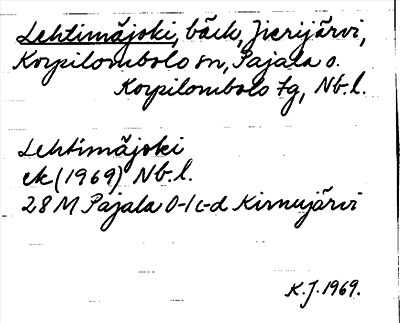 Lehtimäjoki, bäck, Jierijärvi,
Korpilombolo sn, Pajala o.
Korpilombolo tg, Nb. l.
Lehtimäjoki
ek (1969) Nb. l.
28 M Pajala 0-1 c-d Kirnujärvi
K. J. 1969.